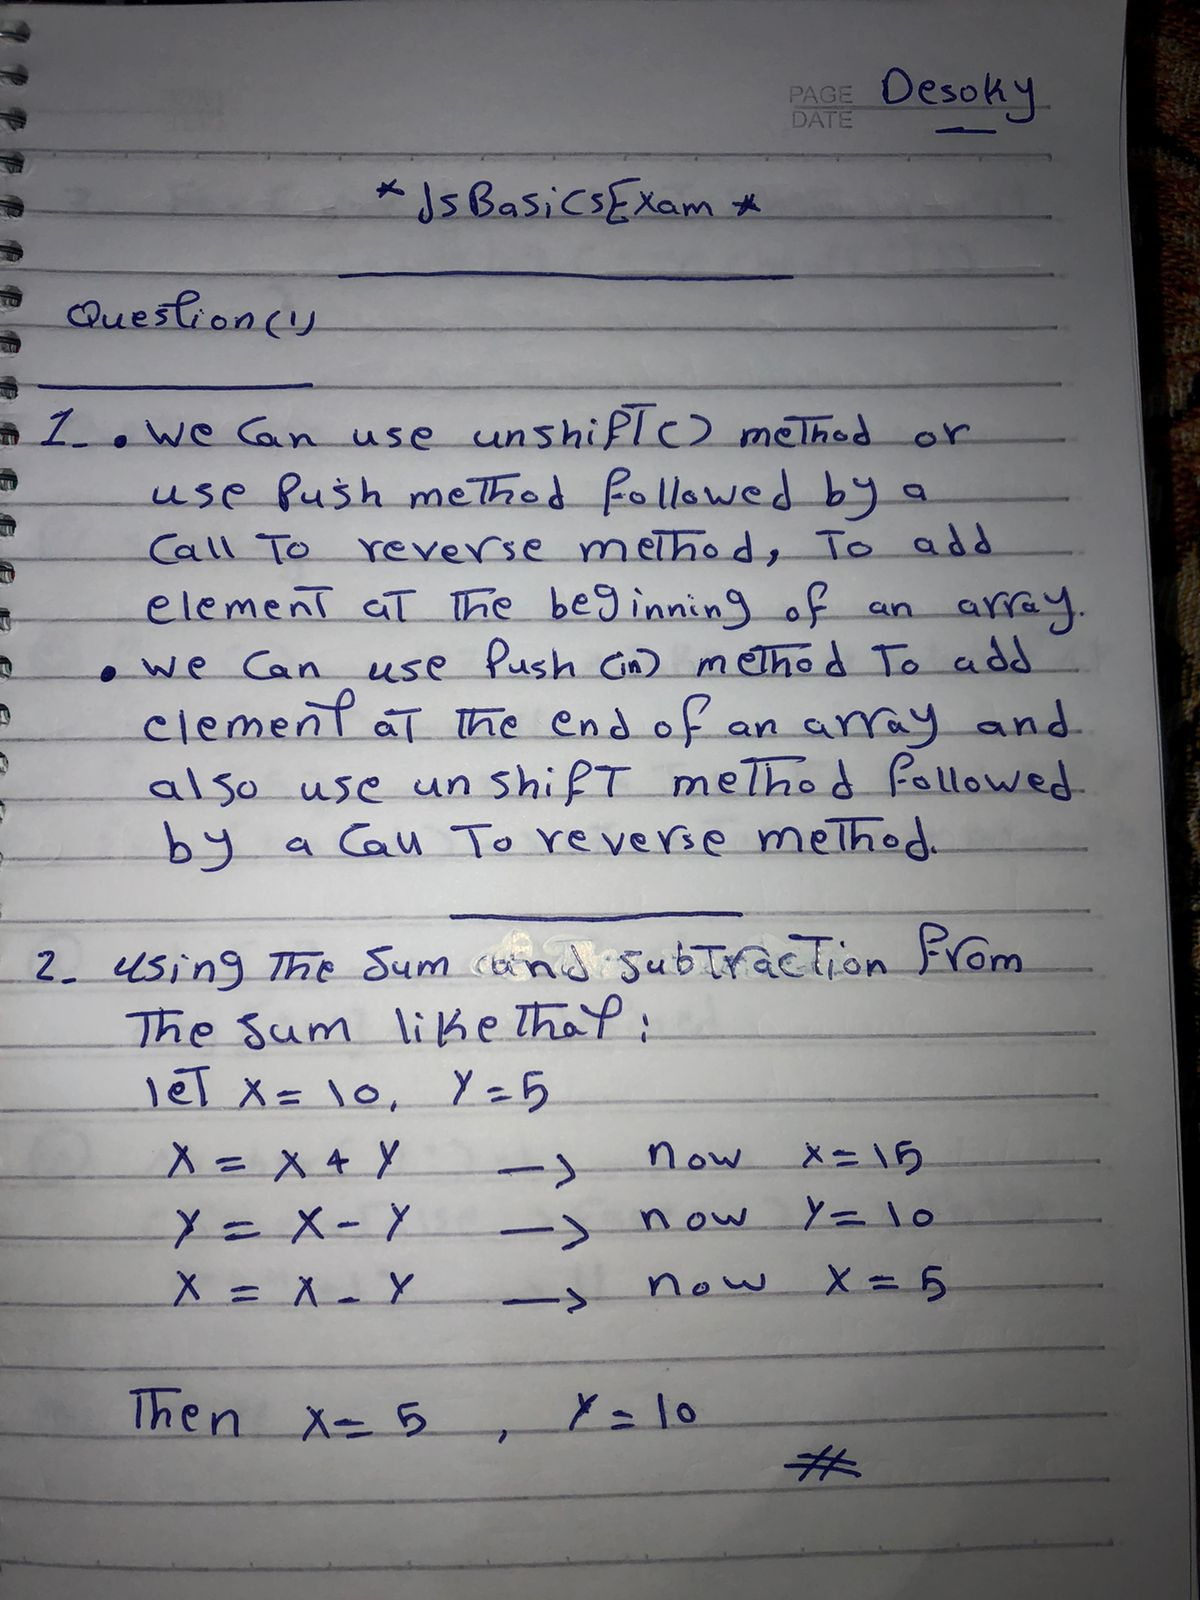 PAGE Desoky
DATE
* JsBasicsExam *
Question (1)
1- • we can use unshift() method or
use Push method followed by a
Call To reverse method, To add
element at the beginning of an array.
• we can use Push (in) method To add
element at the end of an array and
also use unshift method followed
by a Call To reverse method.
2- using The Sum and subtraction from
The sum like that:
let x = 10, y = 5
x = x + y → now x = 15
y = x - y → now y = 10
x = x - y → now x = 5
Then x = 5 , y = 10
#